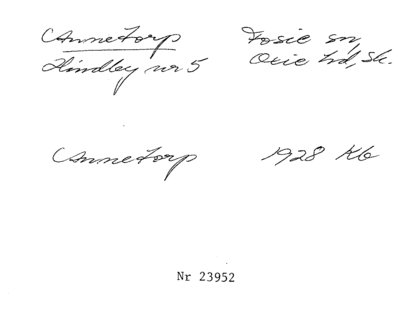 Annetorp Fosie sn,
Hindby nr 5 Oxie hd, Sk.
Annetorp 1928 Kb
Nr 23952